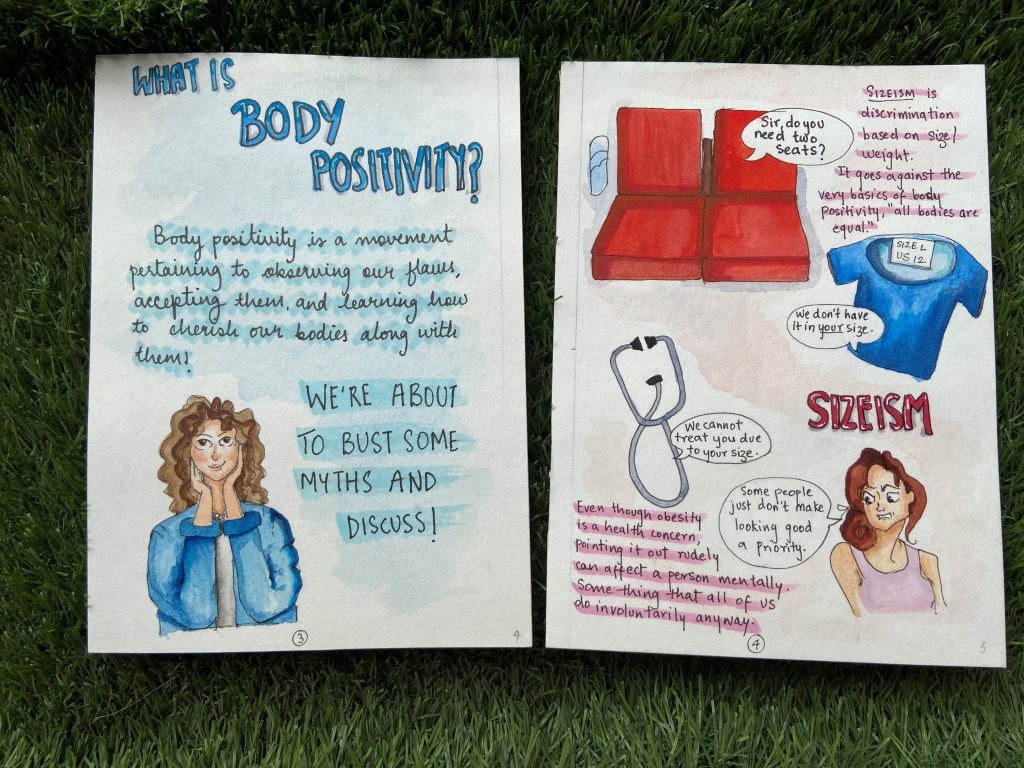 WHAT IS
BODY
POSITIVITY?
Body positivity is a movement
pertaining to observing our flaws,
accepting them, and learning how
to cherish our bodies along with
them!
WE'RE ABOUT
TO BUST SOME
MYTHS AND
DISCUSS!
3
4
Sir, do you
need two
seats?
SIZEISM is
discrimination
based on size/
weight.
It goes against the
very basics of body
positivity, "all bodies are
equal."
SIZE L
US 12
We don't have
it in your size.
SIZEISM
We cannot
treat you due
to your size.
Some people
just don't make
looking good
a priority.
Even though obesity
is a health concern,
pointing it out rudely
can affect a person mentally.
Some thing that all of us
do involuntarily anyway.
4
5